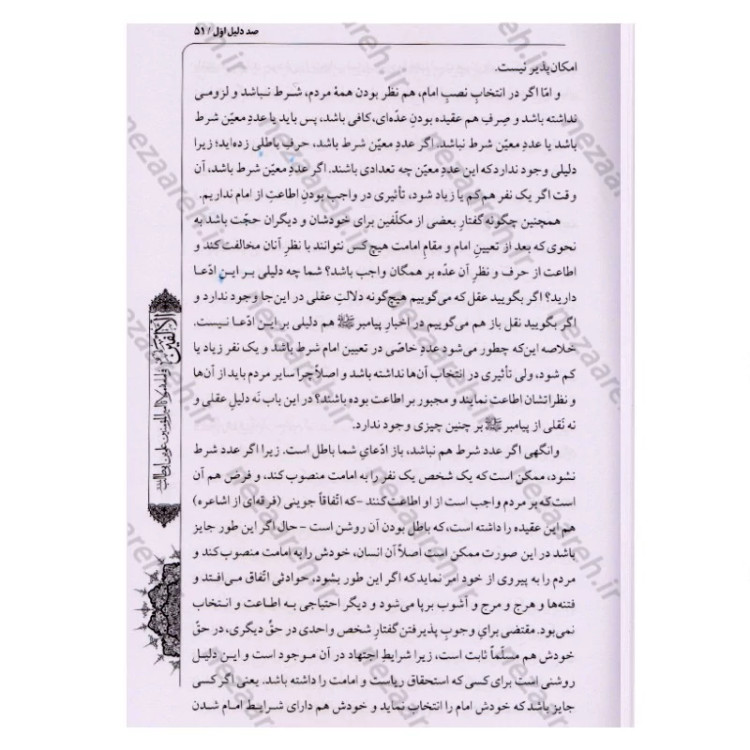 صد دلیل اوّل / ۵۱
امکان‌پذیر نیست.
و امّا اگر در انتخابِ نصبِ امام، هم نظر بودن همهٔ مردم، شرط نباشد و لزومی
نداشته باشد و صِرفِ هم عقیده بودنِ عدّه‌ای،کافی باشد، پس باید یا عددِ معیّن شرط
باشد یا عددِ معیّن شرط نباشد. اگر عددِ معیّن شرط باشد، حرفِ باطلی زده‌اید؛ زیرا
دلیلی وجود ندارد که این عددِ معیّن چه تعدادی باشند. اگر عددِ معیّن شرط باشد، آن
وقت اگر یک نفر هم کم یا زیاد شود، تأثیری در واجب بودنِ اطاعتِ از امام نداریم.
همچنین چگونه گفتارِ بعضی از مکلّفین برای خودشان و دیگران حجّت باشد به
نحوی که بعد از تعیینِ امام و مقامِ امامت هیچ کس نتوانند با نظرِ آنان مخالفت کند و
اطاعت از حرف و نظرِ آن عدّه بر همگان واجب باشد؟ شما چه دلیلی بر این ادّعا
دارید؟ اگر بگویید عقل که می‌گوییم هیچ‌گونه دلالتِ عقلی در این‌جا وجود ندارد و
اگر بگویید نقل باز هم می‌گوییم در اخبارِ پیامبر ﷺ هم دلیلی بر این ادّعا نیست.
خلاصه این‌که چطور می‌شود عددِ خاصّی در تعیین امام شرط باشد و یک نفر زیاد یا
کم شود، ولی تأثیری در انتخاب آن‌ها نداشته باشد و اصلاً چرا سایرِ مردم باید از آن‌ها
و نظراتشان اطاعت نمایند و مجبور بر اطاعت بوده باشند؟ در این باب نَه دلیلِ عقلی و
نه نَقلی از پیامبر ﷺ بَر چنین چیزی وجود ندارد.
وانگهی اگر عدد شرط هم نباشد، باز ادّعایِ شما باطل است. زیرا اگر عدد شرط
نشود، ممکن است که یک شخص یک نفر را به امامت منصوب کند، و فرض هم آن
است که بر مردم واجب است از او اطاعت کنند -که اتّفاقاً جوینی (فرقه‌ای از اشاعره)
هم این عقیده را داشته است، که باطل بودن آن روشن است - حال اگر این طور جایز
باشد در این صورت ممکن است اصلاً آن انسان، خودش را به امامت منصوب کند و
مردم را به پیروی از خود امر نماید که اگر این طور بشود، حوادثی اتّفاق می‌افتد و
فتنه‌ها و هرج و مرج و آشوب برپا می‌شود و دیگر احتیاجی به اطاعت و انتخاب
نمی‌بود. مقتضی برایِ وجوبِ پذیرفتنِ گفتارِ شخص واحدی در حقِّ دیگری، در حقّ
خودش هم مسلّماً ثابت است، زیرا شرایطِ اجتهاد در آن موجود است و این دلیل
روشنی است برای کسی که استحقاقِ ریاست و امامت را داشته باشد. یعنی اگر کسی
جایز باشد که خودش امام را انتخاب نماید و خودش هم دارای شرایطِ امام شدن
الألفین
nezaareh.ir